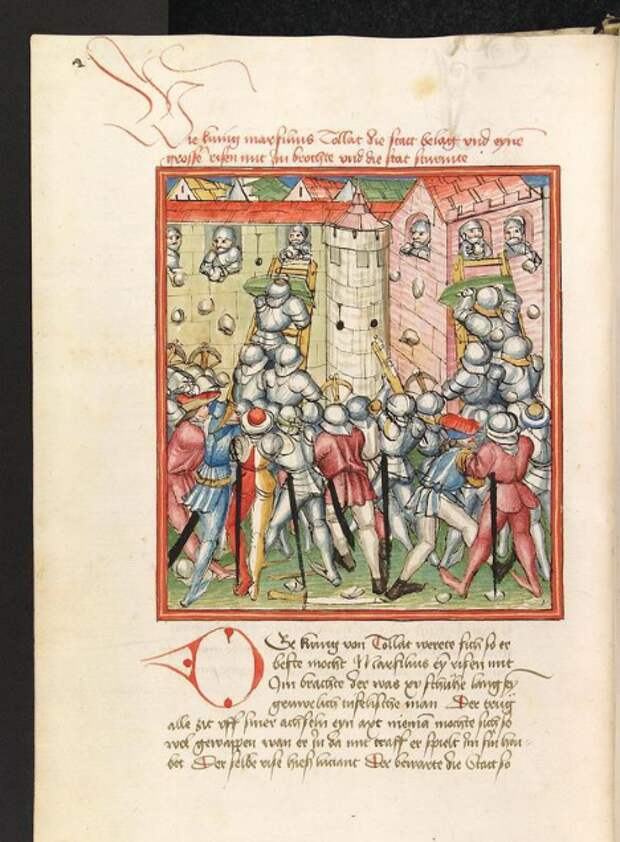 Wie kunig marsilius Tollat die statt belag vnd eyne
grosse risen mit im brochte vnd die stat sturmte
Der kunig von Tollat werete sich so er
beste mocht Marsilius ey risen mit
Im brachte der was xv schuhe lang ey
gruwelich tufelische man Der trug
alle zit vff siner achseln eyn axt nieman mochte sich so
wol gewappen wan er in da mit traff er spielt im sin hau-
bet Der selbe rise hiesz luciant Der bewarte die Statt so